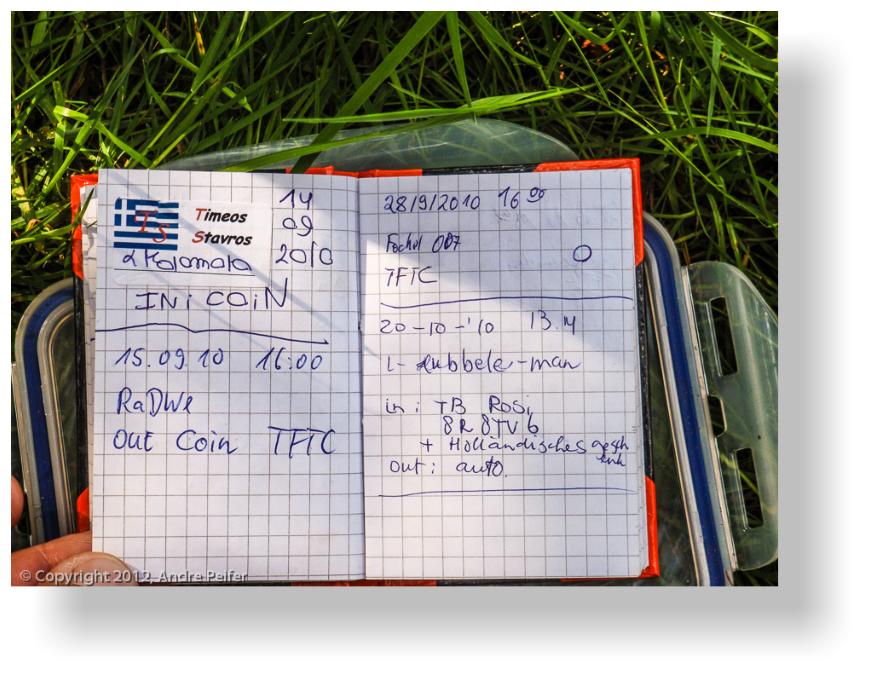 Timeos
Stavros
TS
14
09
2010
INi COiN
15.09.10 16:00
RaDWe
OUT Coin TFTC
28/9/2010 16 00
007
TFTC
20-10-'10 13.14
L-dubbele-man
in: TB Rosi
8R8TV6
+ Holländisches gesch
enk
out: auto.
© Copyright 2012, Andre Peifer